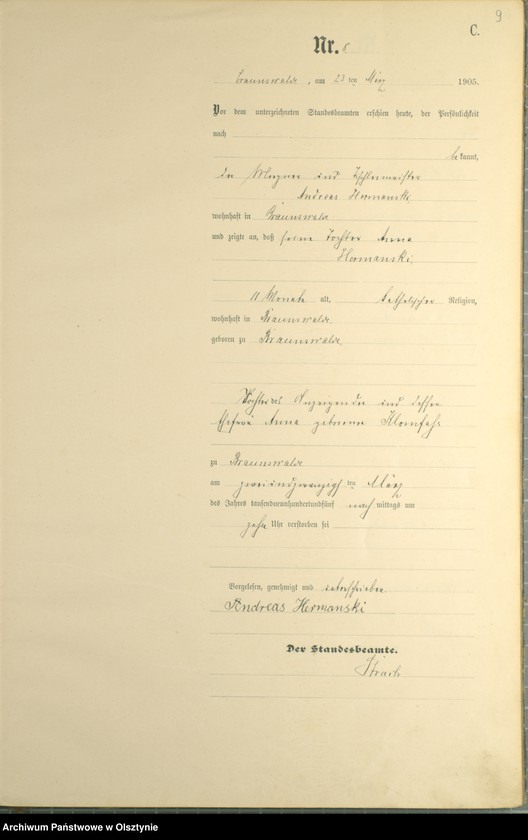 9
C.
Nr.
Braunswalde, am 23 ten März 1905.
Vor dem unterzeichneten Standesbeamten erschien heute, der Persönlichkeit
nach
bekannt,
der und Tischlermeister
Andreas Hermanski
wohnhaft in Braunswalde
und zeigte an, daß seine Tochter Anna
Hermanski,
11 Monate alt, katholischer Religion,
wohnhaft in Braunswalde
geboren zu Braunswalde,
Tochter des Anzeigenden und dessen
Ehefrau Anna geborene
zu Braunswalde
am zweiundzwanzigsten ten März
des Jahres tausendneunhundertundfünf nach mittags um
zehn Uhr verstorben sei
Vorgelesen, genehmigt und unterschrieben
Andreas Hermanski
Der Standesbeamte.
Archiwum Państwowe w Olsztynie